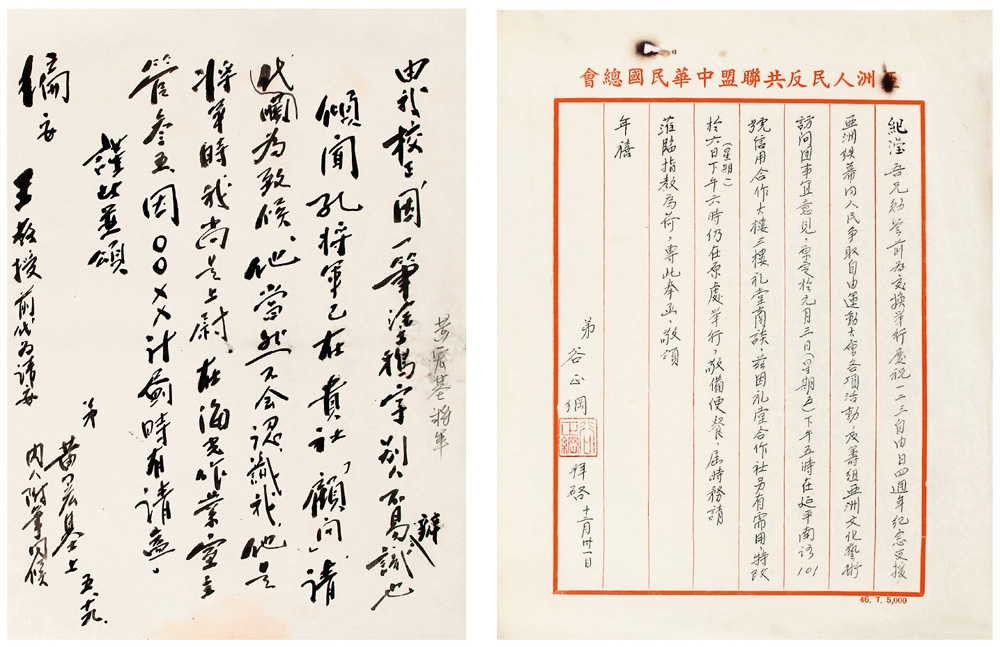 黃宏基將軍
由於校正國一筆塗鴉字別人不易辨識也
傾聞孔將軍已在貴社「顧問」請
代囑為致候。他當然不会認識我他是
將軍時我尚是上尉在海老作業室主
管參五因〇〇××計劃時有請益。
謹此並頌
編安
弟黃宏基上五.六.
內人附筆问候
亞洲人民反共聯盟中華民國總會
紀瀅吾兄勛鑒前為交換举行慶祝一二三自由日四週年纪念支援
亞洲鉄幕內人民争取自由運動大會各項活動及籌組亞洲文化藝術
訪问团事宜意見,原定於元月三日(星期五)下午五時在延平南路101
號信用合作大樓三樓礼堂商談茲因礼堂合作社另有需用,特改
於六日(星期一)下午六時仍在原處举行,敬備便餐,屆時務請
蒞臨指教為荷,專此奉函敬頌
年禧
弟谷正綱
谷正綱
拜啓十二月卅一日
46. 7. 5,000